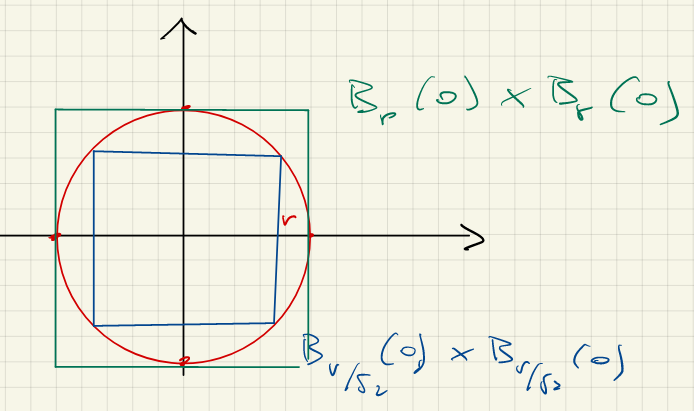 B_r (0) × B_r (0)
r
B_{r/√2} (0) × B_{r/√2} (0)